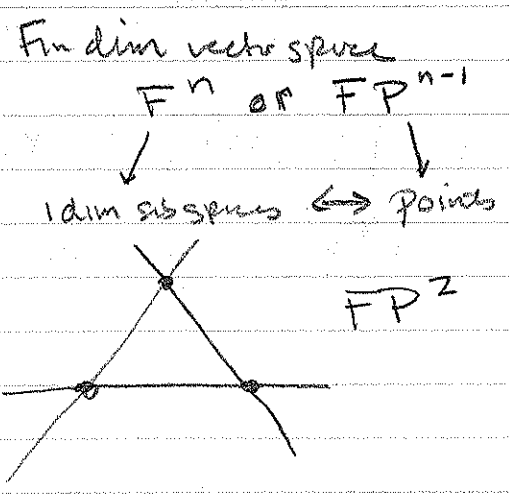 Fin dim vector space
Fⁿ or FPⁿ⁻¹
1 dim subspaces ↔ points
FP²